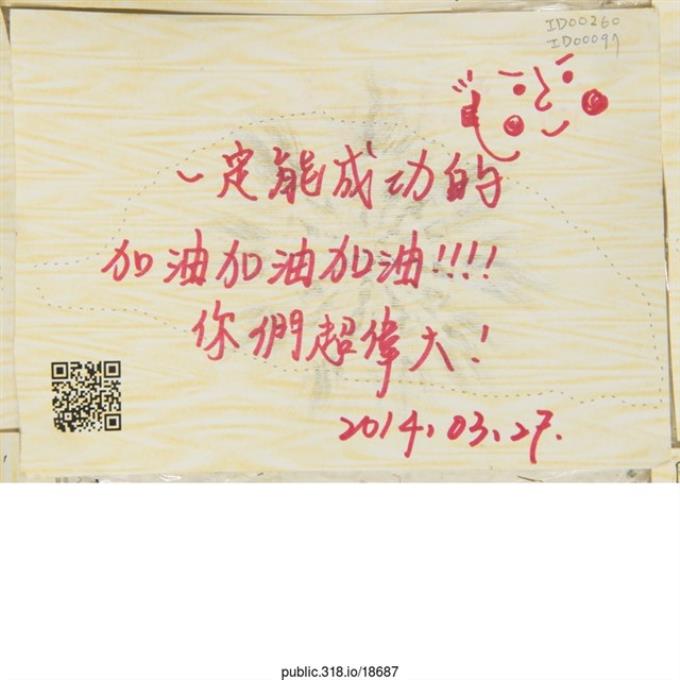 ID00260
ID00097
一定能成功的
加油加油加油!!!!
你們超偉大!
2014.03.27.
public.318.io/18687